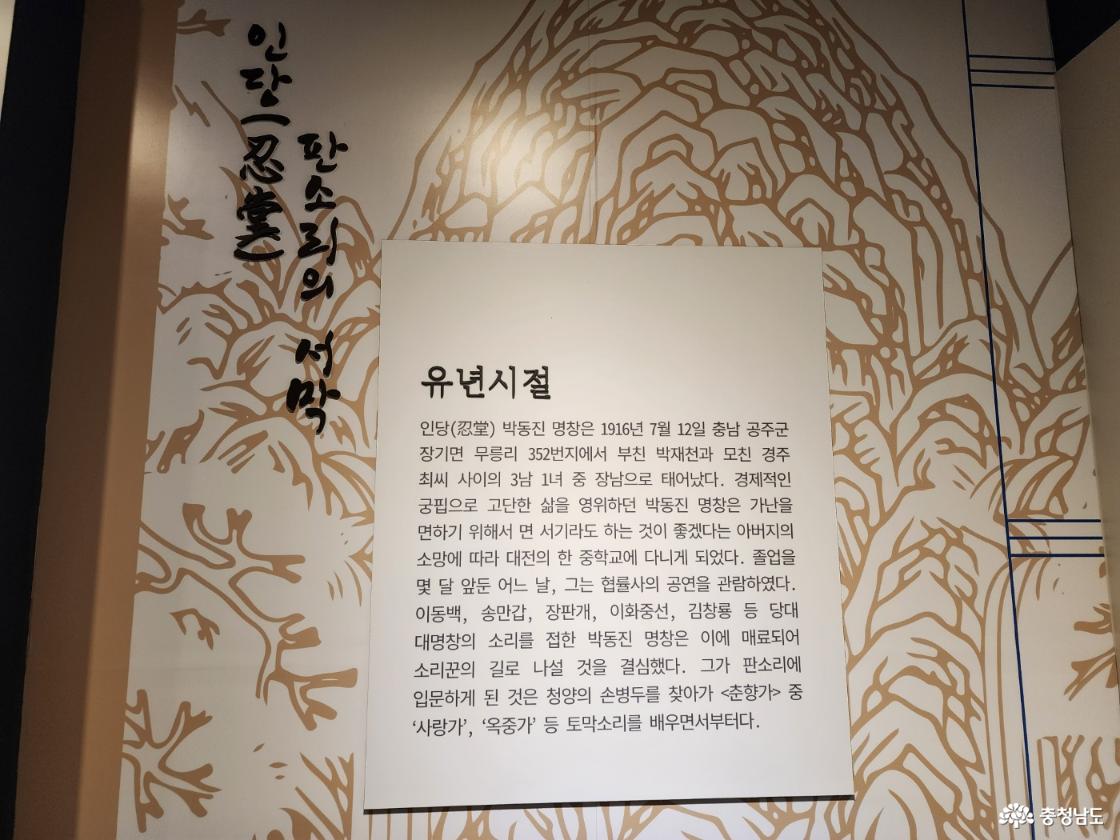 인당(忍堂)
판소리의 서막
유년시절
인당(忍堂) 박동진 명창은 1916년 7월 12일 충남 공주군
장기면 무릉리 352번지에서 부친 박재천과 모친 경주
최씨 사이의 3남 1녀 중 장남으로 태어났다. 경제적인
궁핍으로 고단한 삶을 영위하던 박동진 명창은 가난을
면하기 위해서 면 서기라도 하는 것이 좋겠다는 아버지의
소망에 따라 대전의 한 중학교에 다니게 되었다. 졸업을
몇 달 앞둔 어느 날, 그는 협률사의 공연을 관람하였다.
이동백, 송만갑, 장판개, 이화중선, 김창룡 등 당대
대명창의 소리를 접한 박동진 명창은 이에 매료되어
소리꾼의 길로 나설 것을 결심했다. 그가 판소리에
입문하게 된 것은 청양의 손병두를 찾아가 <춘향가> 중
‘사랑가’, ‘옥중가’ 등 토막소리를 배우면서부터다.
충청남도